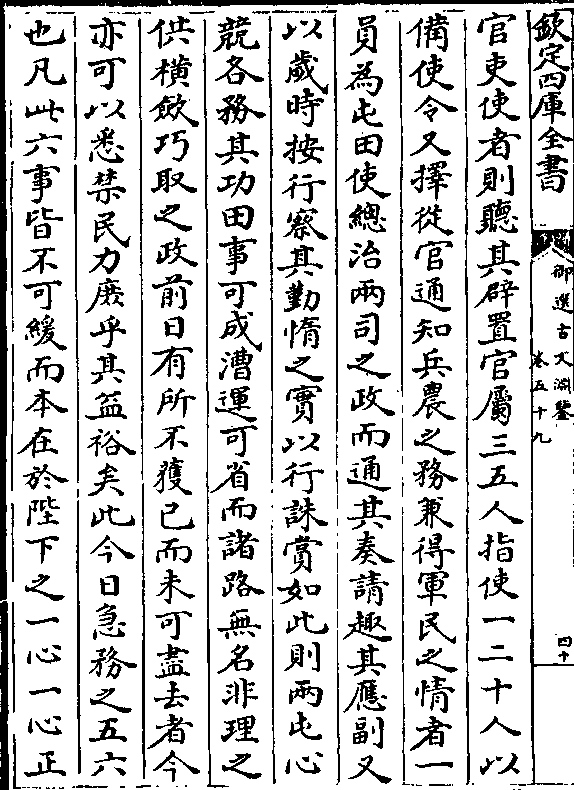 欽定四庫全書
御選古文淵鑒
卷五十九
四十
官吏使者則聽其辟置官屬三五人指使一二十人以
備使令又擇從官通知兵農之務兼得軍民之情者一
員為屯田使總治兩司之政而通其奏請趣其應副又
以歲時按行察其勤惰之實以行誅賞如此則兩屯心
競各務其功田事可成漕運可省而諸路無名非理之
供橫斂巧取之政前日有所不獲已而未可盡去者今
亦可以悉禁民力庶乎其益裕矣此今日急務之五六
也凡此六事皆不可緩而本在於陛下之一心一心正